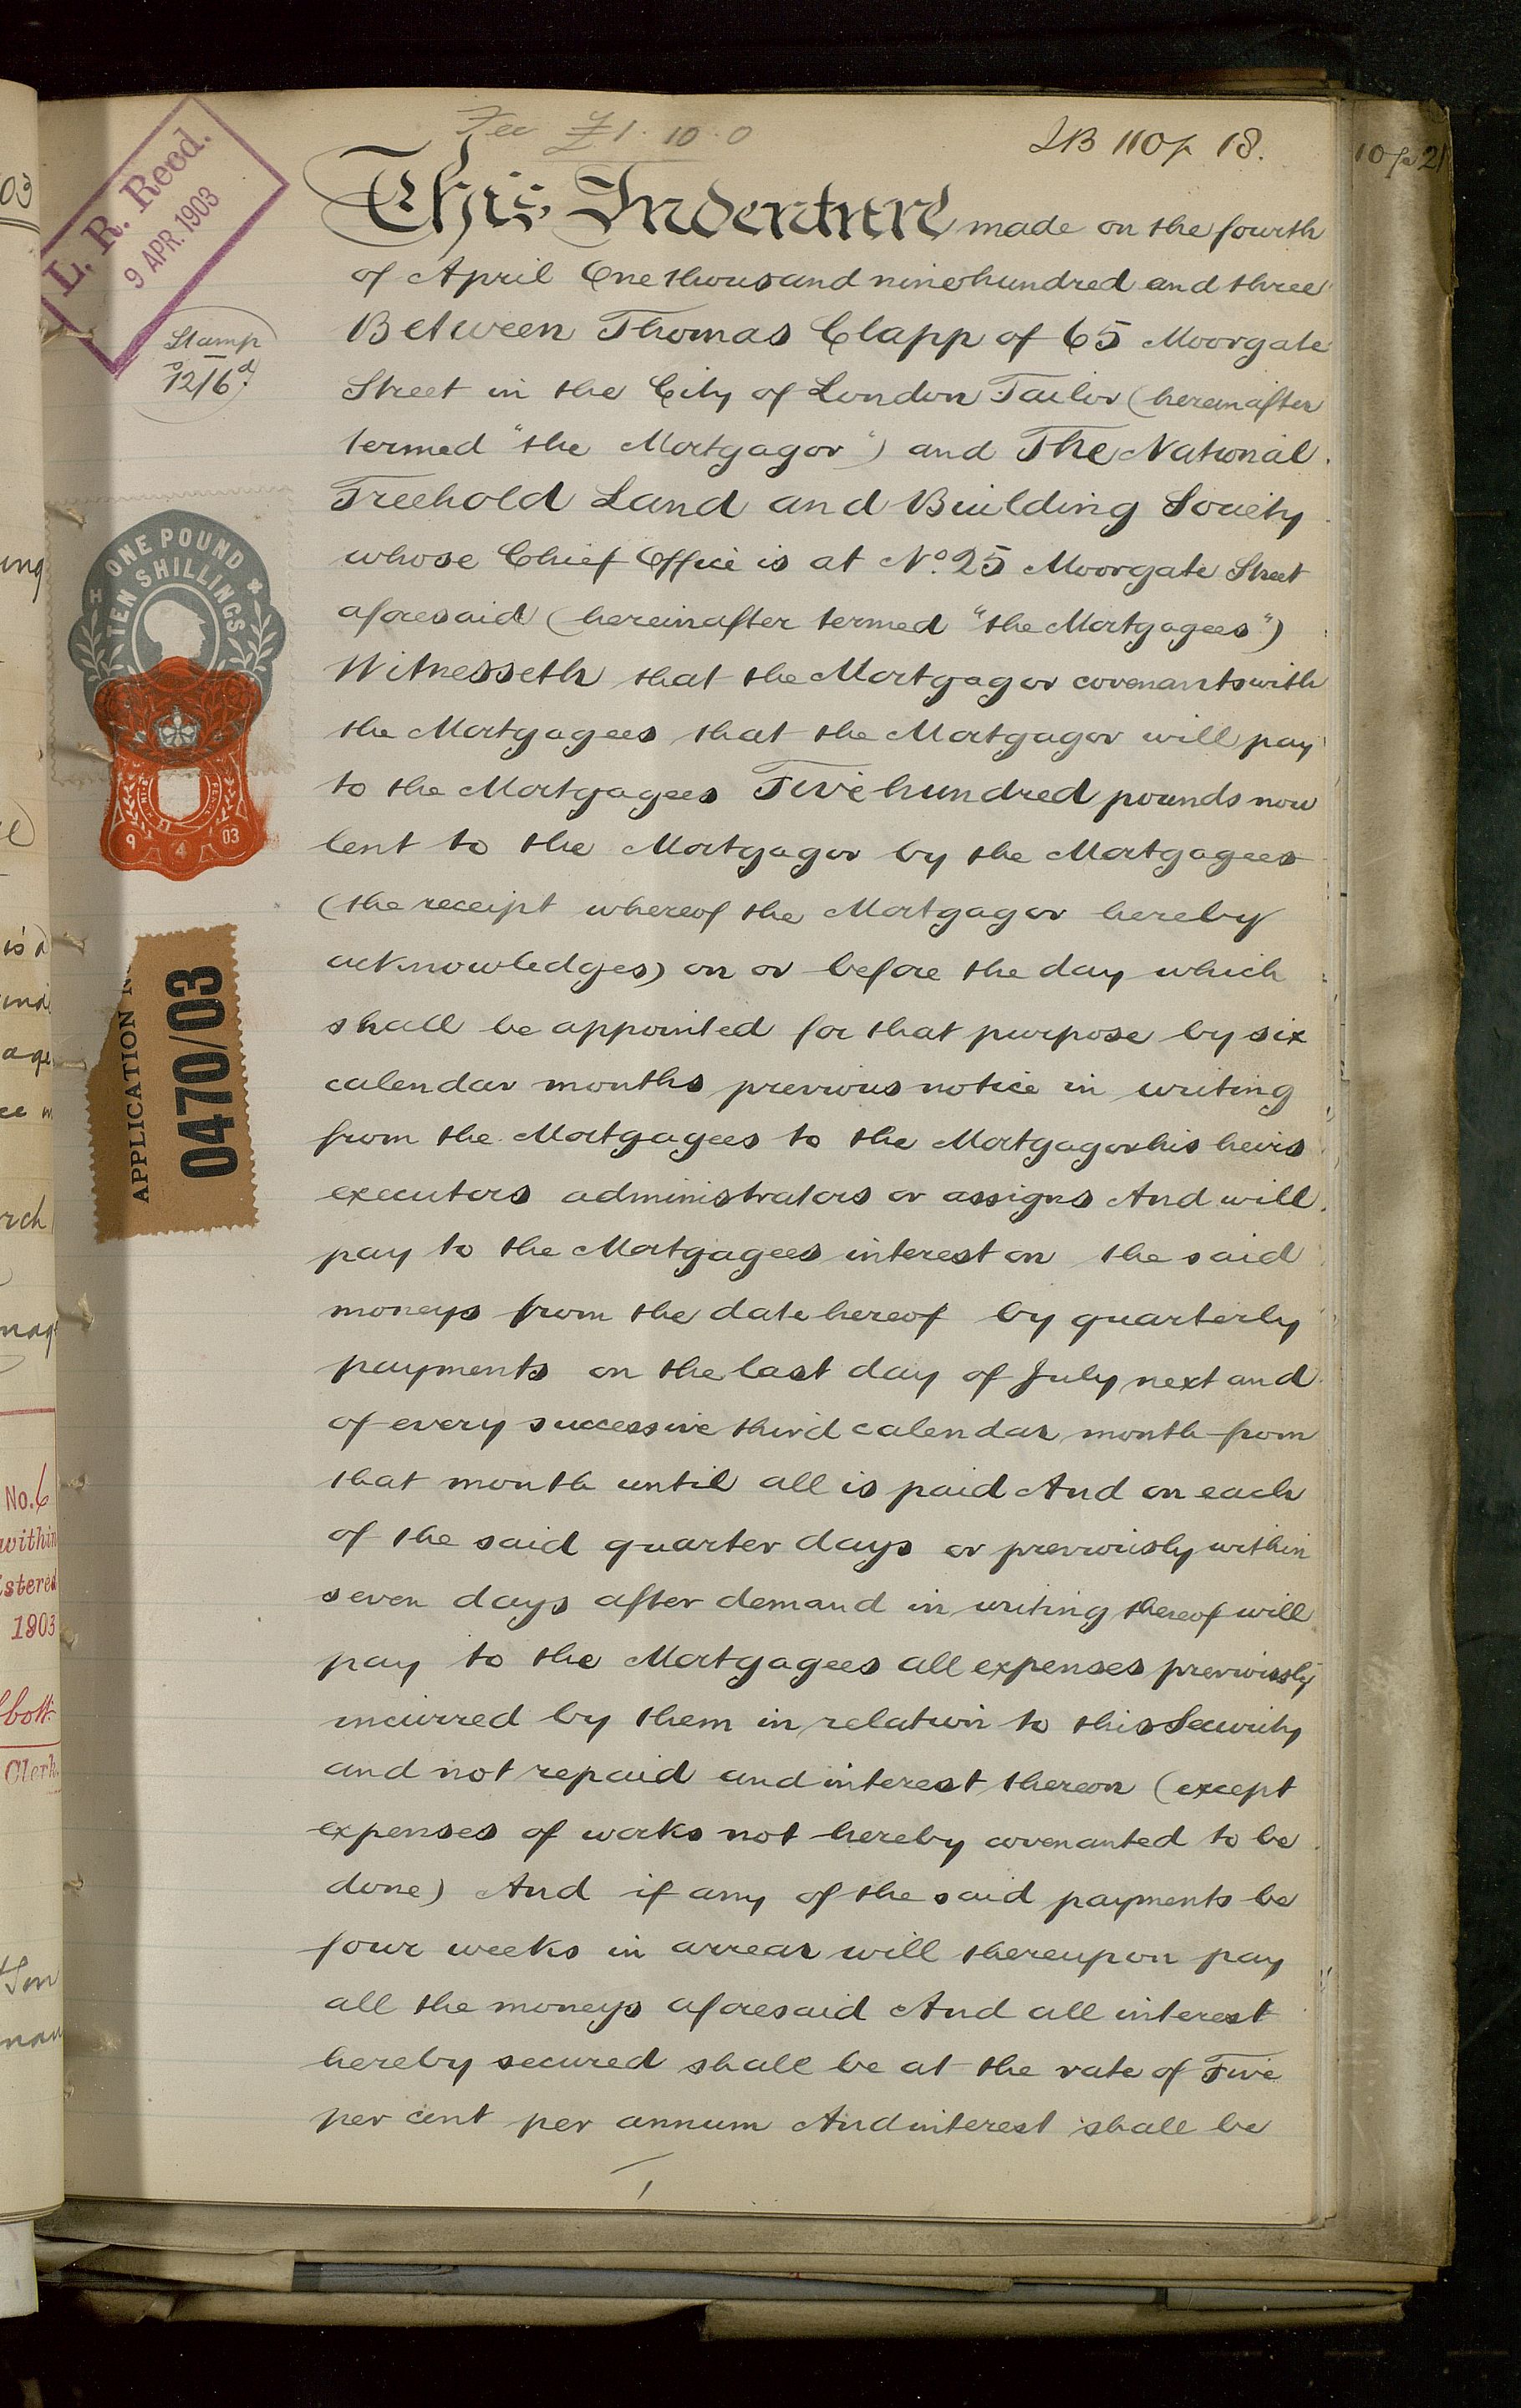 Fee £1. 10. 0
LB 110 p 18.
10 p 21
L. R. Recd.
9 APR. 1903
Stamp
12/6d.
ONE POUND
TEN SHILLINGS
H
9 4 03
APPLICATION N
0470/03
This Indenture made on the fourth
of April One thousand nine hundred and three
Between Thomas Clapp of 65 Moorgate
Street in the City of London Tailor (hereinafter
termed "the Mortgagor") and The National
Freehold Land and Building Society
whose Chief Office is at No. 25 Moorgate Street
aforesaid (hereinafter termed "the Mortgagees")
Witnesseth that the Mortgagor covenants with
the Mortgagees that the Mortgagor will pay
to the Mortgagees Five hundred pounds now
lent to the Mortgagor by the Mortgagees
(the receipt whereof the Mortgagor hereby
acknowledges) on or before the day which
shall be appointed for that purpose by six
calendar months previous notice in writing
from the Mortgagees to the Mortgagor his heirs
executors administrators or assigns And will
pay to the Mortgagees interest on the said
moneys from the date hereof by quarterly
payments on the last day of July next and
of every successive third calendar month from
that month until all is paid And on each
of the said quarter days or previously within
seven days after demand in writing thereof will
pay to the Mortgagees all expenses previously
incurred by them in relation to this Security
and not repaid and interest thereon (except
expenses of works not hereby covenanted to be
done) And if any of the said payments be
four weeks in arrear will thereupon pay
all the moneys aforesaid And all interest
hereby secured shall be at the rate of Five
per cent per annum And interest shall be
1
03
ing
ind
age
rch
No. 6
within
istered
1903
Clerk.